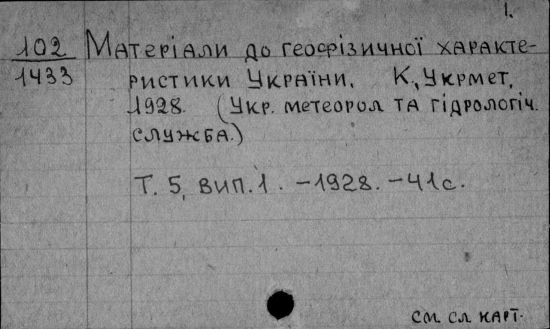 1.
102 Матеріали до геофізичної характе-
1433 ристики України. К., Укрмет,
1928. (Укр. метеорол та гідрологіч.
служба.)
Т. 5, вип. 1. – 1928. – 41 с.
см. сл. карт.